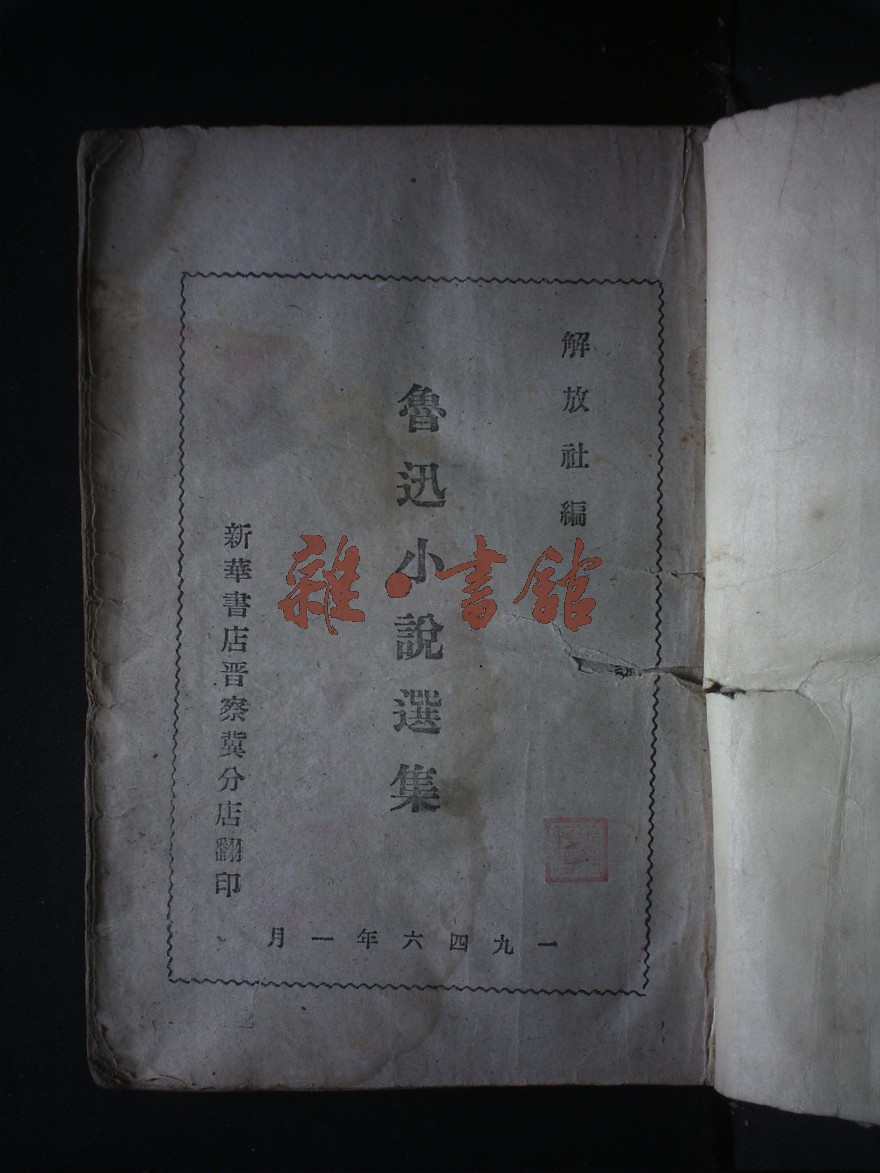 解放社編
魯迅小說選集
新華書店晋察冀分店翻印
一九四六年一月
雜·書舘